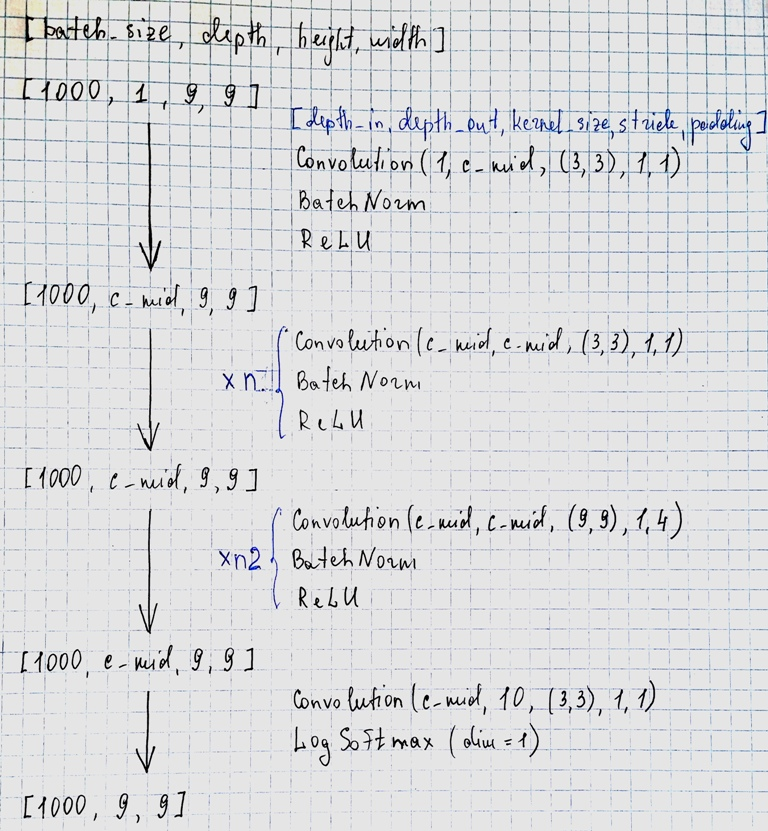 [batch_size, depth, height, width]
[1000, 1, 9, 9]
[depth_in, depth_out, kernel_size, stride, padding]
Convolution (1, c-mid, (3,3), 1,1)
BatchNorm
ReLU
[1000, c-mid, 9, 9]
Convolution (c-mid, c-mid, (3,3), 1,1)
xn
BatchNorm
ReLU
[1000, c-mid, 9,9]
Convolution (c-mid, c-mid, (9,9), 1,4)
xn2
BatchNorm
ReLU
[1000, c-mid, 9, 9]
Convolution (c-mid, 10, (3,3), 1,1)
LogSoftmax (dim=1)
[1000, 9, 9]